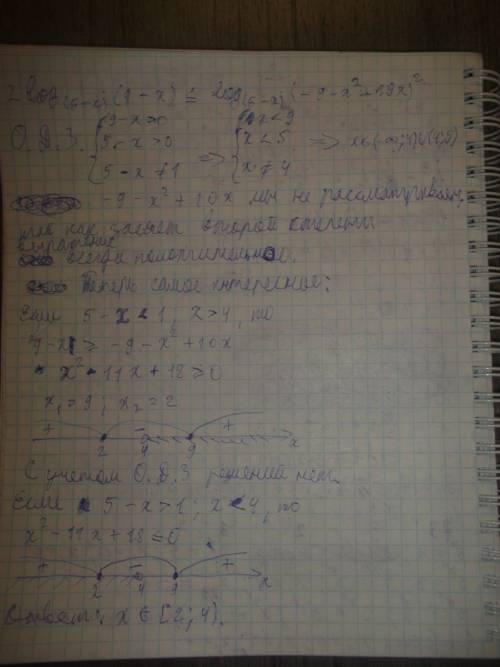 2 log(5-x) (9-x) ≤ log(5-x) (-9-x²+10x)²
О.Д.З. { 9-x>0 { x<9
5-x>0 { x<5 => x∈(-∞;4)∪(4;5)
5-x≠1 => x≠4
-9-x²+10x мы не рассматриваем,
так как
выражение второй степени
всегда
Теперь самое интересное:
Если 5-x<1; x>4, то
9-x ≥ -9-x²+10x
x²-11x+18≥0
x₁=9; x₂=2
+ - +
2 4 9 x
С учетом О.Д.З решений нет.
Если 5-x>1; x<4, то
x²-11x+18≤0
+ - +
2 4 9 x
Ответ: x∈[2;4).